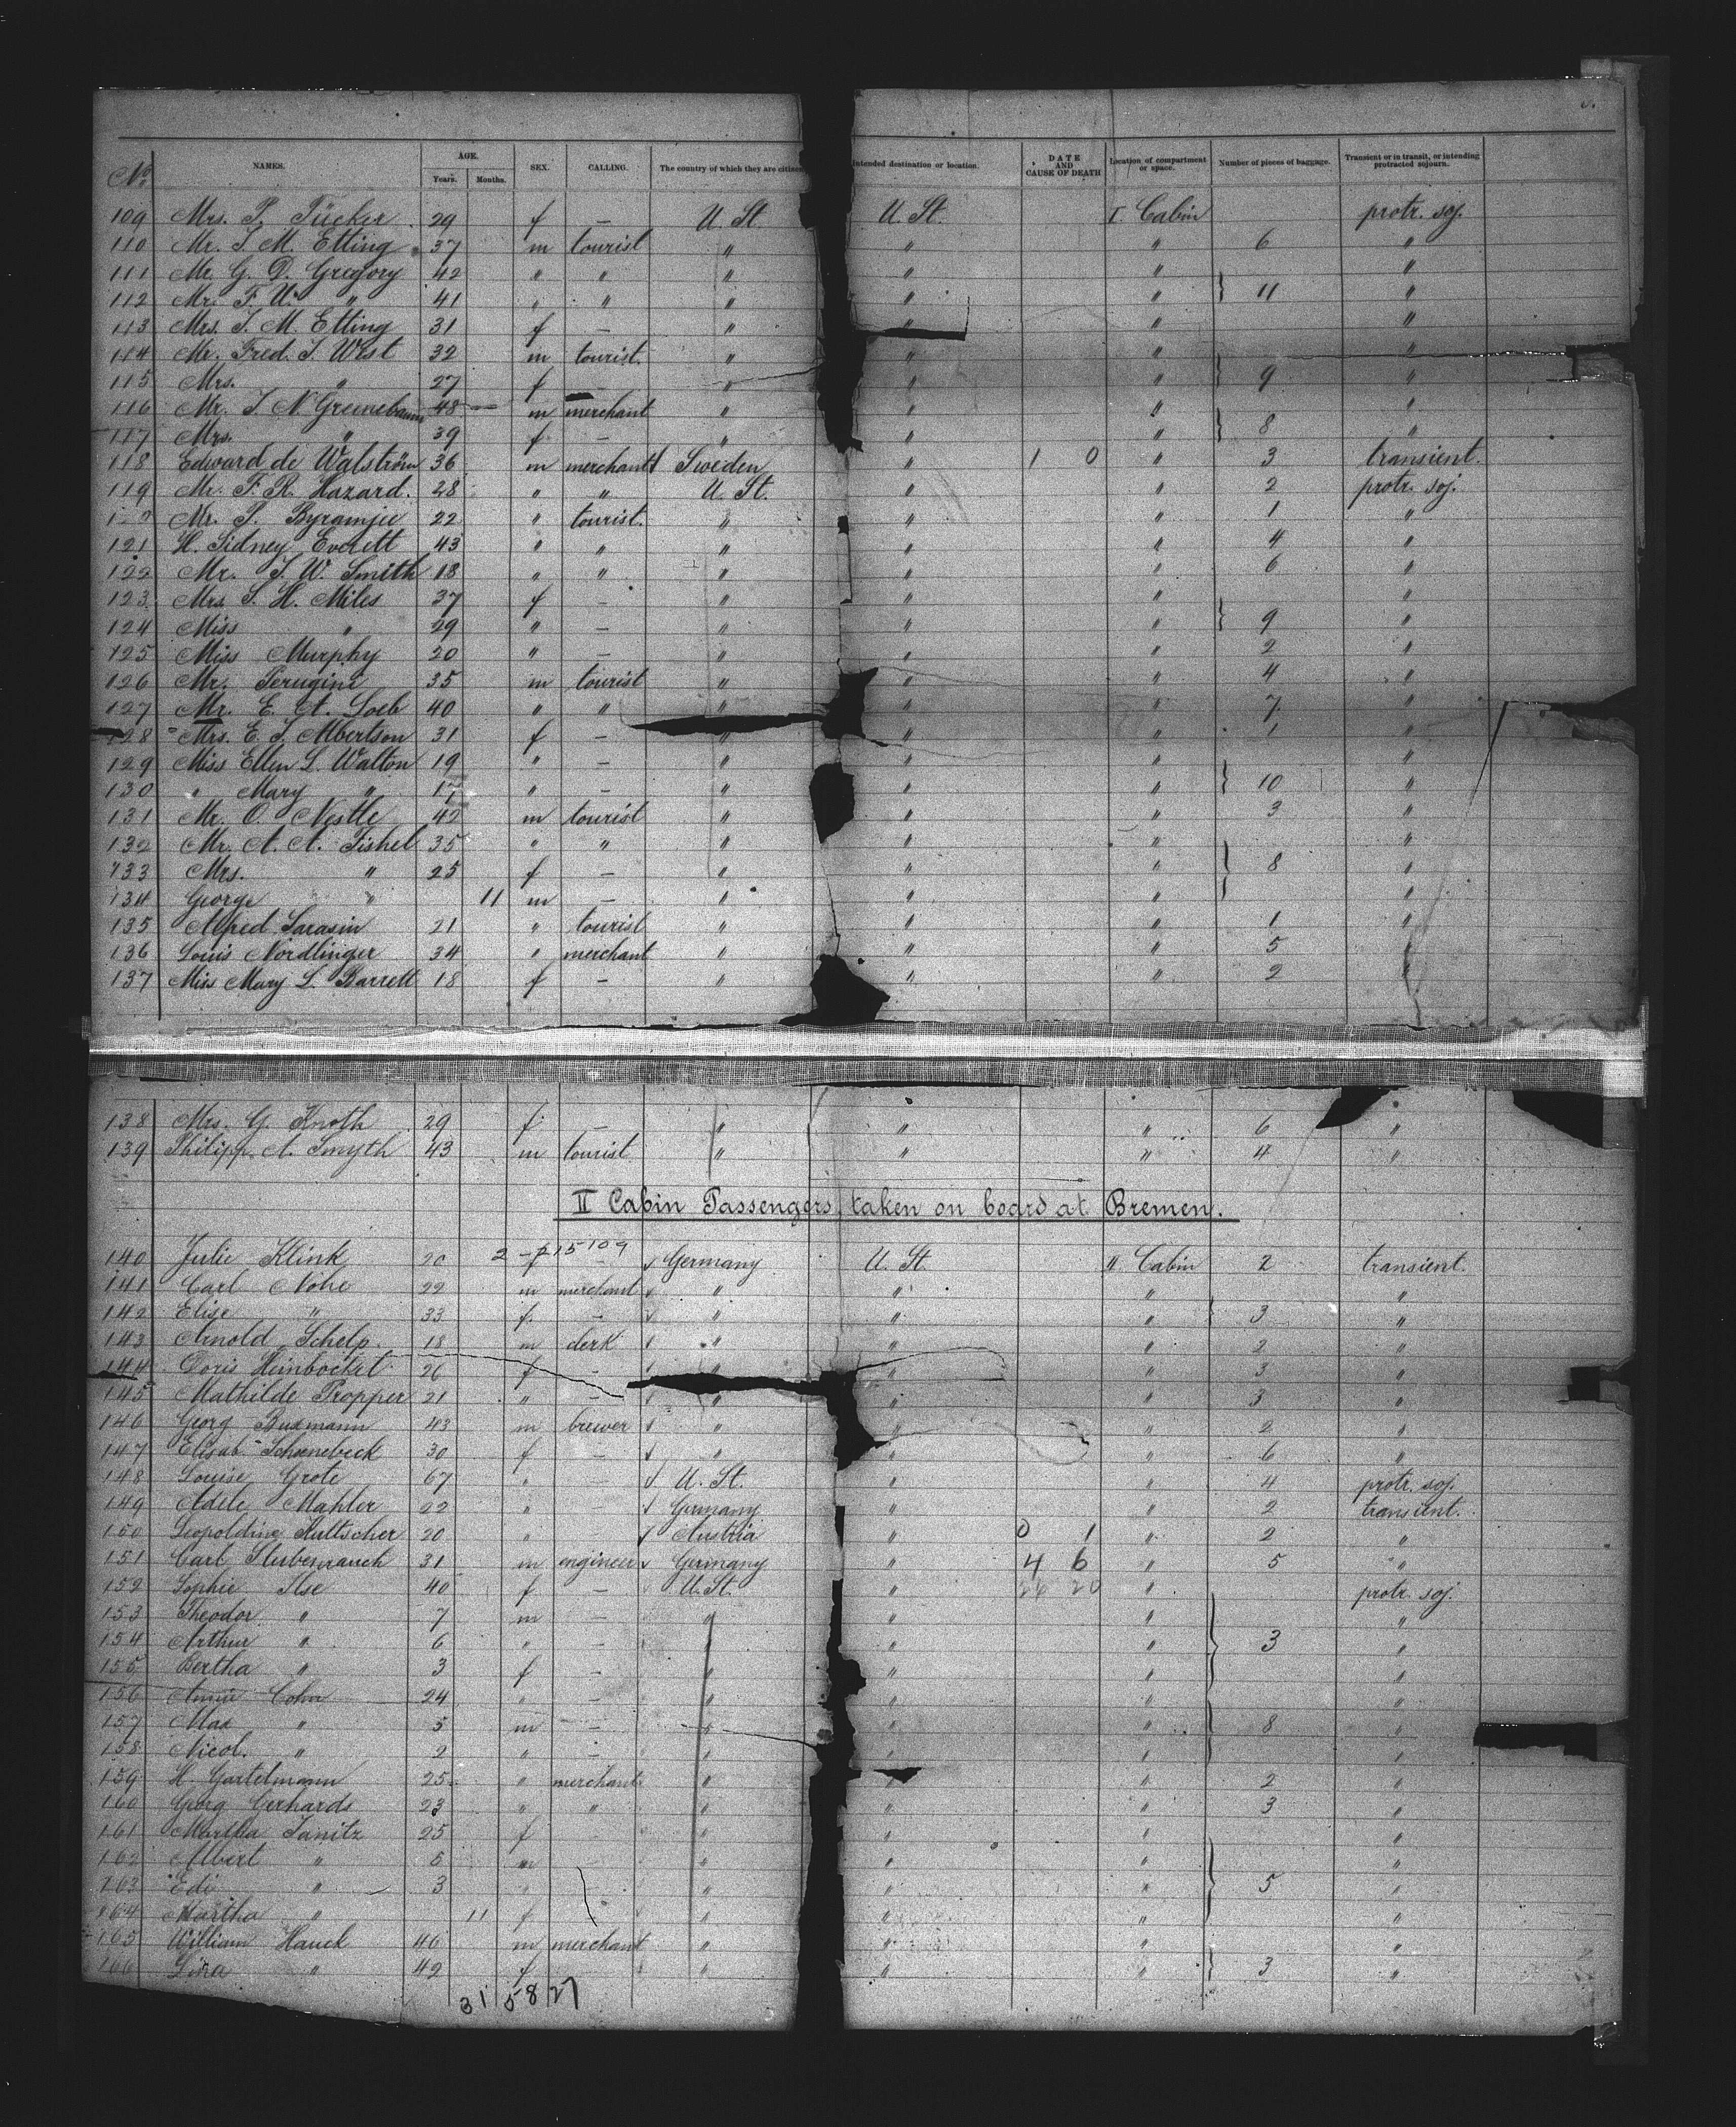 No. NAMES. AGE. Years. Months. SEX. CALLING. The country of which they are citizens Intended destination or location. DATE AND CAUSE OF DEATH Location of compartment or space. Number of pieces of baggage. Transient or in transit, or intending protracted sojourn.
109 Mrs. P. Tücker 29 f — U. St. U. St. I Cabin protr. soj.
110 Mr. T. M. Etting 37 m tourist " " " 6 "
111 Mr. G. D. Gregory 42 " " " " " "
112 Mr. F. U. " 41 " " " " " } 11 "
113 Mrs. T. M. Etting 31 f — " " " "
114 Mr. Fred. T. West 32 m tourist. " " " "
115 Mrs. " 27 f — " " " } 9 "
116 Mr. J. N. Greenebaum 48 — m merchant " " " "
117 Mrs. " 39 f — " " " } 8 "
118 Edward de Walström 36 m merchant Sweden " 1 0 " 3 transient.
119 Mr. F. R. Hazard. 28 " " U. St. " " 2 protr. soj.
120 Mr. P. Byramjee 22 " tourist. " " " 1 "
121 H. Sidney Everett 43 " " " " " 4 "
122 Mr. J. W. Smith 18 " " " " " 6 "
123 Mrs. S. H. Miles 37 f — " " " "
124 Miss " 29 " — " " " } 9 "
125 Miss Murphy 20 " — " " " 2 "
126 Mr. Perugini 35 m tourist " " " 4 "
127 Mr. E. A. Loeb 40 " " " " " 7 "
128 Mrs. E. J. Albertson 31 f — " " " 1 "
129 Miss Ellen L. Walton 19 " — " " " "
130 " Mary " 17 " — " " " } 10 "
131 Mr. O. Nestle 42 m tourist " " " 3 "
132 Mr. A. A. Fishel 35 " " " " " "
133 Mrs. " 25 f — " " " } 8 "
134 George " 11 m — " " " "
135 Alfred Sarasin 21 " tourist " " " 1 "
136 Louis Nordlinger 34 " merchant " " " 5 "
137 Miss Mary L. Barrett 18 f — " " " 2 "
138 Mrs. G. Knoth 29 f — " " " 6 "
139 Philipp A. Smyth 43 m tourist " " " 4 "
II Cabin Passengers taken on board at Bremen.
140 Julie Klink 20 f — Germany U. St. II Cabin 2 transient.
141 Carl Nohe 22 m merchant " " " "
142 Elise " 33 f. — " " " } 3 "
143 Arnold Schelp 18 m clerk " " " 2 "
144 Doris Heinbockel 26 f — " " " 3 "
145 Mathilde Propper 21 " — " " " 3 "
146 Georg Buxmann 43 m brewer " " " 2 "
147 Elisab. Schoenebeck 30 f — " " " 6 "
148 Louise Grote 67 " U. St. " " 4 protr. soj.
149 Adele Mahler 22 " — Germany " " 2 transient.
150 Leopoldine Kultscher 20 " Austria " 0 1 " 2 "
151 Carl Stubenrauch 31 m engineer Germany " 4 6 " 5 "
152 Sophie Ilse 40 f — U. St. " 24 20 " protr. soj.
153 Theodor " 7 m — " " " "
154 Arthur " 6 " — " " " } 3 "
155 Bertha " 3 f — " " " "
156 Annie Cohn 24 " — " " " "
157 Max " 5 m — " " " } 8 "
158 Nicol. " 2 " — " " " "
159 H. Gartelmann 25 " merchant " " " 2 "
160 Georg Gerhards 23 " " " " " 3 "
161 Martha Janitz 25 f " " " "
162 Albert " 5 m " " " "
163 Edi " 3 " " " " } 5 "
164 Martha " 11 f " " " "
165 William Hauck 46 m merchant " " " "
166 Lina " 42 f — " " " } 3 "
31 58 27